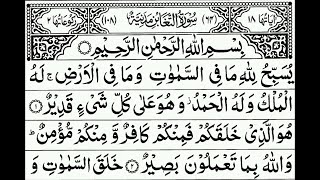 اٰيَاتُهَا ١٨ (٦٤) سُوْرَةُ التَّغَابُنِ مَدَنِيَّةٌ (١٠٨) رُكُوْعَاتُهَا ٢
بِسْمِ اللّٰهِ الرَّحْمٰنِ الرَّحِيْمِ
يُسَبِّحُ لِلّٰهِ مَا فِى السَّمٰوٰتِ وَمَا فِى الْاَرْضِ ۚ لَهُ
الْمُلْكُ وَلَهُ الْحَمْدُ ۫ وَهُوَ عَلٰى كُلِّ شَىْءٍ قَدِيْرٌ ۝١
هُوَ الَّذِىْ خَلَقَكُمْ فَمِنْكُمْ كَافِرٌ وَّمِنْكُمْ مُّؤْمِنٌ ؕ
وَاللّٰهُ بِمَا تَعْمَلُوْنَ بَصِيْرٌ ۝٢ خَلَقَ السَّمٰوٰتِ وَ